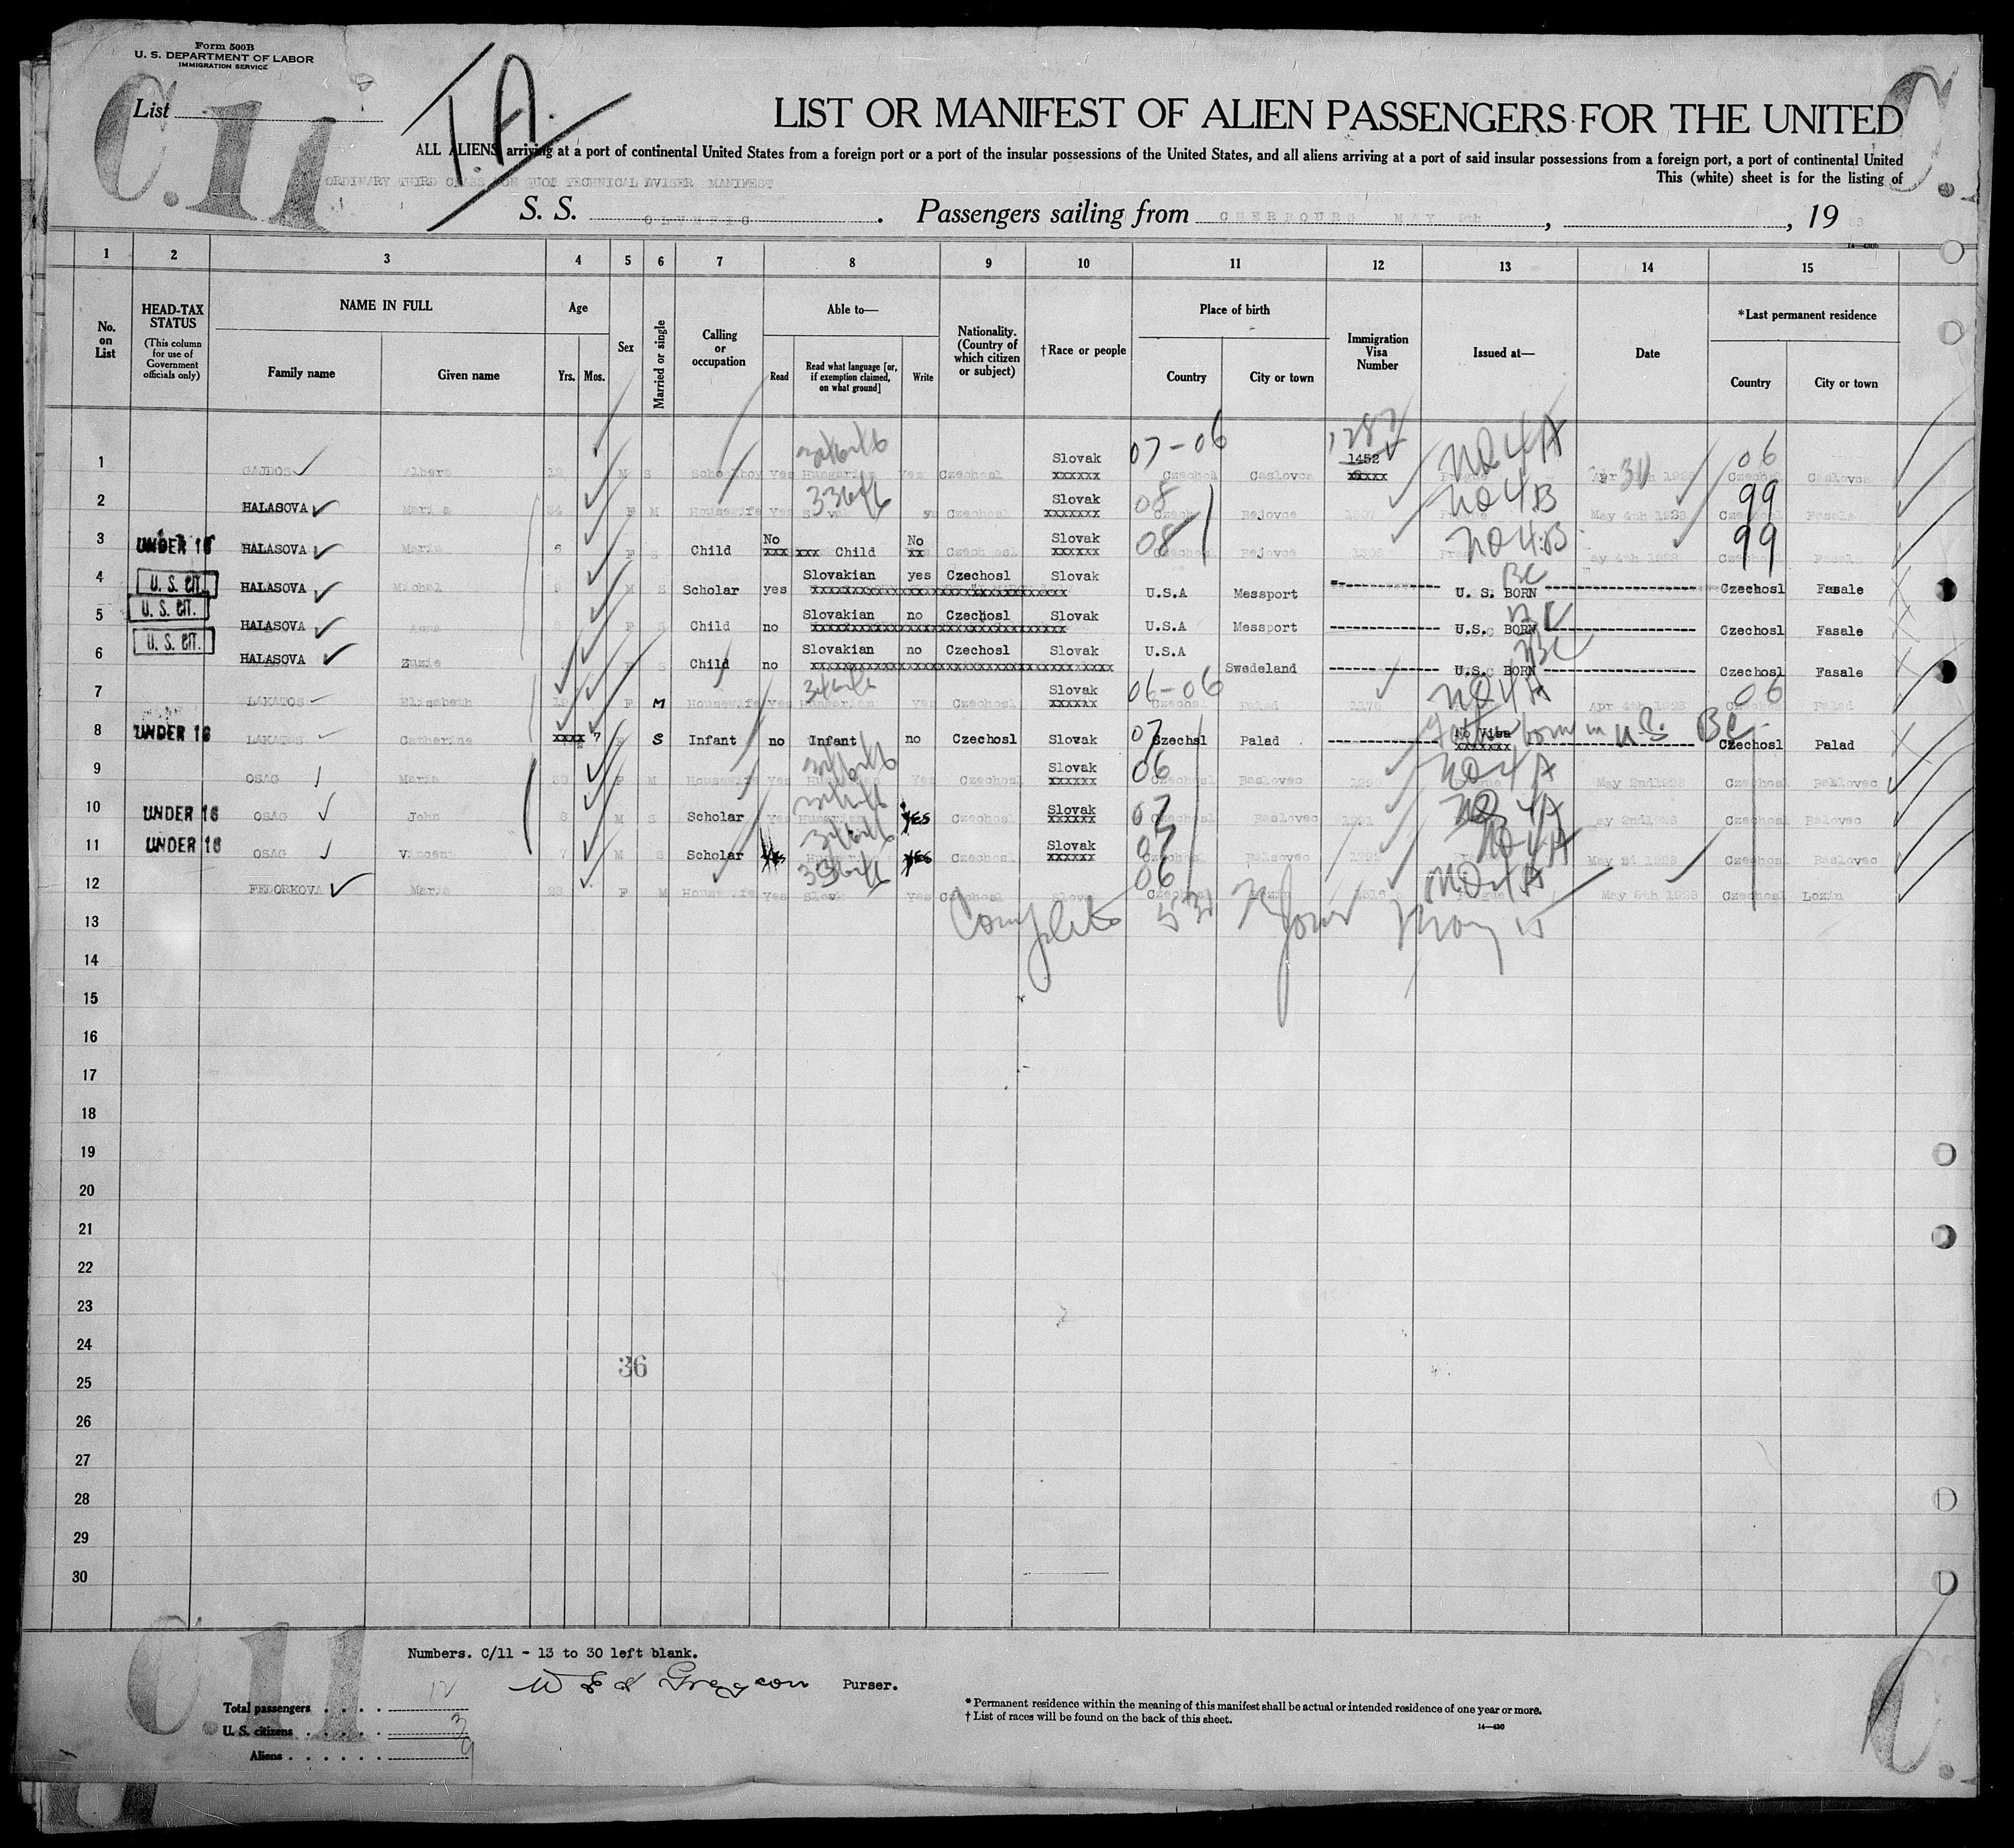 Form 500B
U. S. DEPARTMENT OF LABOR
IMMIGRATION SERVICE
C.11
List
T.A.
C.
LIST OR MANIFEST OF ALIEN PASSENGERS FOR THE UNITED
ALL ALIENS arriving at a port of continental United States from a foreign port or a port of the insular possessions of the United States, and all aliens arriving at a port of said insular possessions from a foreign port, a port of continental United
This (white) sheet is for the listing of
ORDINARY THIRD CLASS NON QUOT TECHNICAL DVISER MANIFEST
S. S. OLYMPIC. Passengers sailing from CHERBOURG MAY 9th, , 19 28
14—430b
1 2 3 4 5 6 7 8 9 10 11 12 13 14 15
No. on List
HEAD-TAX STATUS
(This column for use of Government officials only)
NAME IN FULL
Family name Given name
Age
Yrs. Mos.
Sex
Married or single
Calling or occupation
Able to—
Read Read what language [or, if exemption claimed, on what ground] Write
Nationality. (Country of which citizen or subject)
†Race or people
Place of birth
Country City or town
Immigration Visa Number
Issued at—
Date
*Last permanent residence
Country City or town
1 GAJDOS Albert 19 M S Schoolboy Yes Hungarian Yes Czechosl Slovak xxxxxx 07-06 Czechosl Caslovce 1287 1452 xxxxx NQ4A Prague Apr 30 1928 06 Czechosl Caslovce
2 HALASOVA Maria 34 F M Housewife Yes Slovak Czechosl Slovak xxxxxxx 08 Czech Bejovce NQ4B May 4th 1928 99 Czechosl Fasale
3 UNDER 16 HALASOVA Maria 6 F S Child No xxx xxx Child No xx Czechosl Slovak xxxxxx 08 Czechosl Bejovce NQ4B May 4th 1928 99 Czechosl Fasale
4 U. S. CIT. HALASOVA Michal 9 M S Scholar yes Slovakian yes Czechosl Slovak U.S.A Messport BC U. S. BORN Czechosl Fasale
5 U. S. CIT. HALASOVA Anna F S Child no Slovakian no Czechosl Slovak U.S.A Messport BC U.S. BORN Czechosl Fasale
6 U. S. CIT. HALASOVA Zuzie F S Child no Slovakian no Czechosl Slovak U.S.A Swedeland BC U.S. BORN Czechosl Fasale
7 LAKATOS Elisabeth 19 F M Housewife Yes Hungarian Yes Czechosl Slovak xxxxxx 06-06 Czechosl Palad 1175 NQ4A Apr 4th 1928 06 Palad
8 UNDER 16 LAKATOS Catherine xxxx 7 F S Infant no Infant no Czechosl Slovak 07 Czechsl Palad No Visa xxxxxxx Father born in U.S. BC Czechosl Palad
9 OSAG Maria 30 F M Housewife Yes Hungarian Yes Czechosl Slovak xxxxxx 06 Czechosl Baslovec 1290 NQ4A May 2nd1928 Czechosl Baslovec
10 UNDER 16 OSAG John 8 M S Scholar Yes Hungarian YES Czechosl Slovak xxxxxx 07 Czechosl Baslovec 1291 NQ4A May 2nd1928 Czechosl Baslovec
11 UNDER 16 OSAG Vincent 7 M S Scholar YES YES Czechosl Slovak xxxxxx 07 Baslovec 1292 NQ4A 1928 Czechosl Baslovec
12 FEDORKOVA Maria 23 F M Housewife Yes Slovak Yes Czechosl Slovak 06 Czechosl Lozin NQ4A Prague May 5th 1928 Czechosl Lozin
13 Complete May 15
14
15
16
17
18
19
20
21
22
23
24
36
25
26
27
28
29
30
Numbers. C/11 - 13 to 30 left blank.
C11
Purser.
Total passengers . . . . 12
U. S. citizens . . . . . 3
Aliens . . . . . . 9
* Permanent residence within the meaning of this manifest shall be actual or intended residence of one year or more.
† List of races will be found on the back of this sheet.
14—430
C.